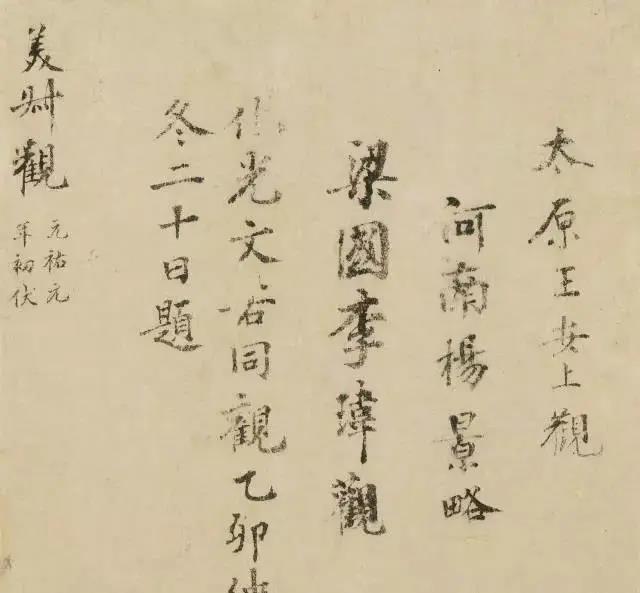 太原王安上觀
河南楊景略
梁國李瑋觀
光文若同觀乙卯仲
冬二十日題
美叔觀
元祐元
年初伏